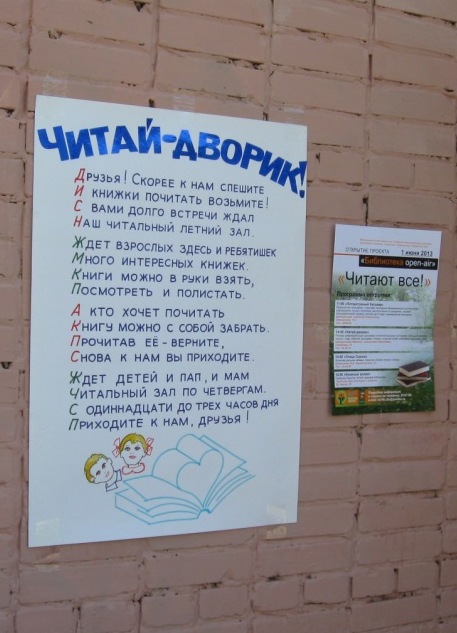 ЧИТАЙ-ДВОРИК!
ДРУЗЬЯ! СКОРЕЕ К НАМ СПЕШИТЕ
И КНИЖКИ ПОЧИТАТЬ ВОЗЬМИТЕ!
С ВАМИ ДОЛГО ВСТРЕЧИ ЖДАЛ
НАШ ЧИТАЛЬНЫЙ ЛЕТНИЙ ЗАЛ.
ЖДЕТ ВЗРОСЛЫХ ЗДЕСЬ И РЕБЯТИШЕК
МНОГО ИНТЕРЕСНЫХ КНИЖЕК.
КНИГИ МОЖНО В РУКИ ВЗЯТЬ,
ПОСМОТРЕТЬ И ПОЛИСТАТЬ.
А КТО ХОЧЕТ ПОЧИТАТЬ
КНИГУ МОЖНО С СОБОЙ ЗАБРАТЬ.
ПРОЧИТАВ ЕЁ - ВЕРНИТЕ,
СНОВА К НАМ ВЫ ПРИХОДИТЕ.
ЖДЕТ ДЕТЕЙ И ПАП, И МАМ
ЧИТАЛЬНЫЙ ЗАЛ ПО ЧЕТВЕРГАМ.
С ОДИННАДЦАТИ ДО ТРЕХ ЧАСОВ ДНЯ
ПРИХОДИТЕ К НАМ, ДРУЗЬЯ!
ОТКРЫТИЕ ПРОЕКТА 1 июня 2013
«Библиотека open-air»
«Читают все!»
Программа открытия: